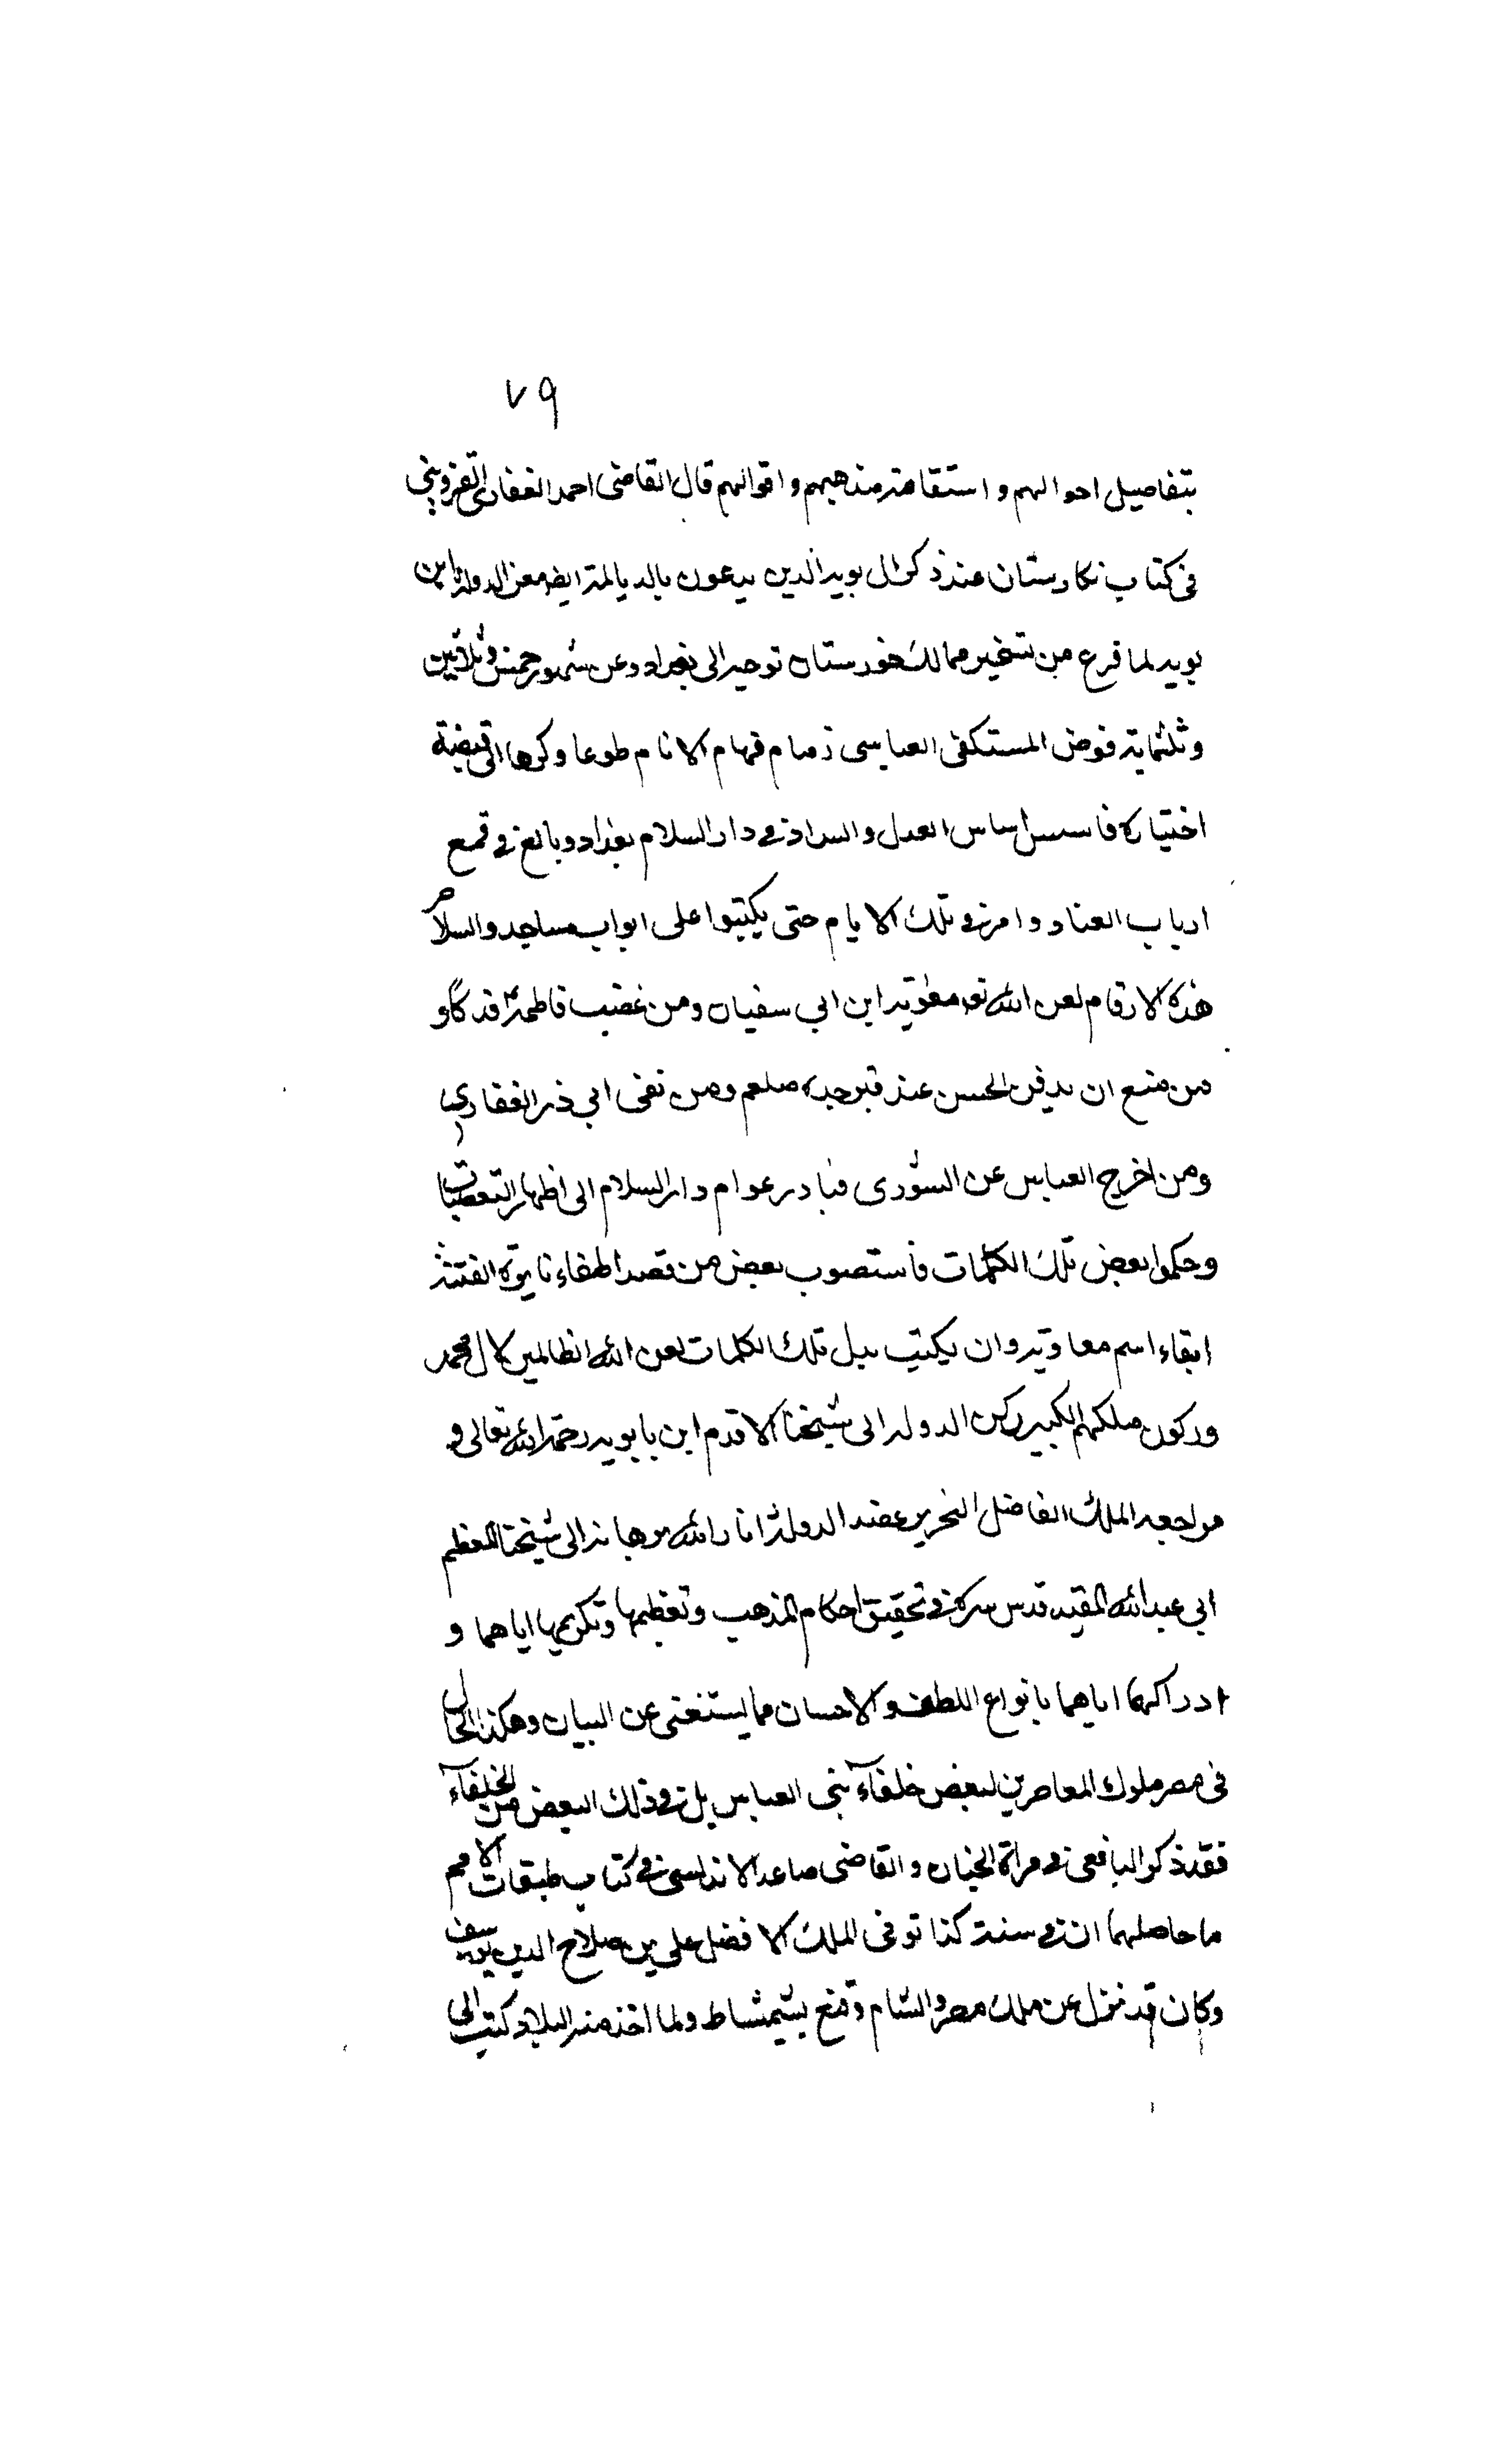 ٧٩
بتفاصيل احوالهم و استقامة مذهبهم و اقوالهم قال القاضى احمد الغفارى القزوينى
فى كتاب نكارستان عند ذكر ال بويه الذين يدعون بالديالمة ايضا معز الدولة ابن
بويه لما فرغ من تسخير ممالك خوزستان توجه الى بغداد وعن شهور خمس وثلاثين
وثلثماية فوض المستكفى العباسى زمام مهام الانام طوعا وكرها الى قبضة
اختياره فاسس اساس العدل والسداد فى دار السلام بغداد وبالغ فى قمع
ارباب العناد وامر فى تلك الايام حتى يكتبوا على ابواب مساجد دار السلام
هذه الارقام لعن الله تع معوية ابن ابي سفيان ومن غضب فاطمة فدكا و
من منع ان يدفن الحسن عند قبر جده صلعم ومن نفى ابي ذر الغفاري
ومن اخرج العباس عن الشورى فبادر عوام دار السلام الى اظهار التعصبات
وحكوا بعض تلك الكلمات فاستصوب بعض من قصد اطفاء نايرة الفتنة
ابقاء اسم معاوية وان يكتب بدل تلك الكلمات لعن الله الظالمين لال محمد
وركون ملكهم الكبير ركن الدولة الى شيخنا الاقدم ابن بابويه رحمة الله تعالى و
مراجعة الملك الفاضل النحرير عضد الدولة انار الله برهانه الى شيخنا المعظم
ابى عبد الله المفيد قدس سره فى تحقيق احكام المذهب وتعظيمها وتكريمها اياهما و
ادراكهما اياهما بانواع اللطف والاحسان مما يستغنى عن البيان وهكذا الحال
فى مصر ملوك المعاصرين لبعض خلفآء بنى العباس بل فى ذلك البعض من الخلفآء
فقد ذكر اليافعى فى مراة الجنان والقاضى صاعد الاندلسى فى كتاب طبقات الامم
ما حاصلهما ان فى سنة كذا توفى الملك الافضل على بن صلاح الدين يوسف
وكان قد نزل عن ملك مصر والشام وقنع بشيمشاط ولما اخذ منه البلاد كتب الى